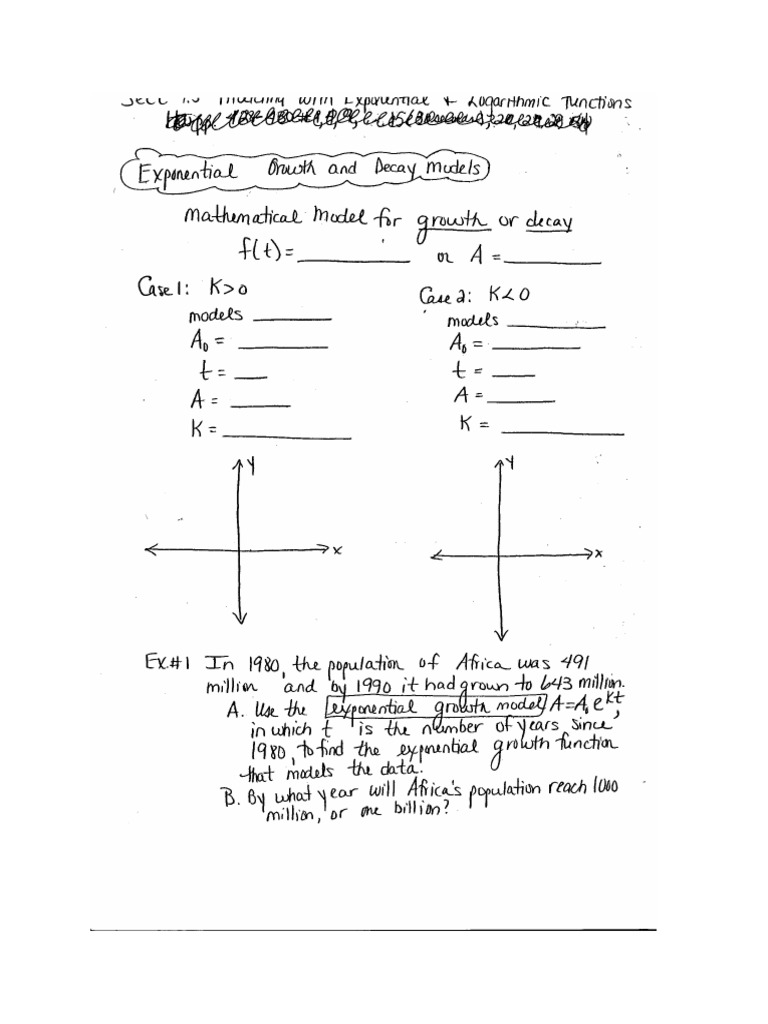 with Exponential + Logarithmic Functions
Exponential Growth and Decay Models
Mathematical Model for growth or decay
f(t)= ________ or A = ________
Case 1: K>0
models ________
A₀ = ________
t = ___
A = ______
K = ____________
Case 2: K<0
models ________
A₀ = ________
t = ____
A = ______
K = ____________
y
x
y
x
Ex.#1 In 1980, the population of Africa was 491
million and by 1990 it had grown to 643 million.
A. Use the exponential growth model A=A₀e^kt,
in which t is the number of years since
1980, to find the exponential growth function
that models the data.
B. By what year will Africa's population reach 1000
million, or one billion?